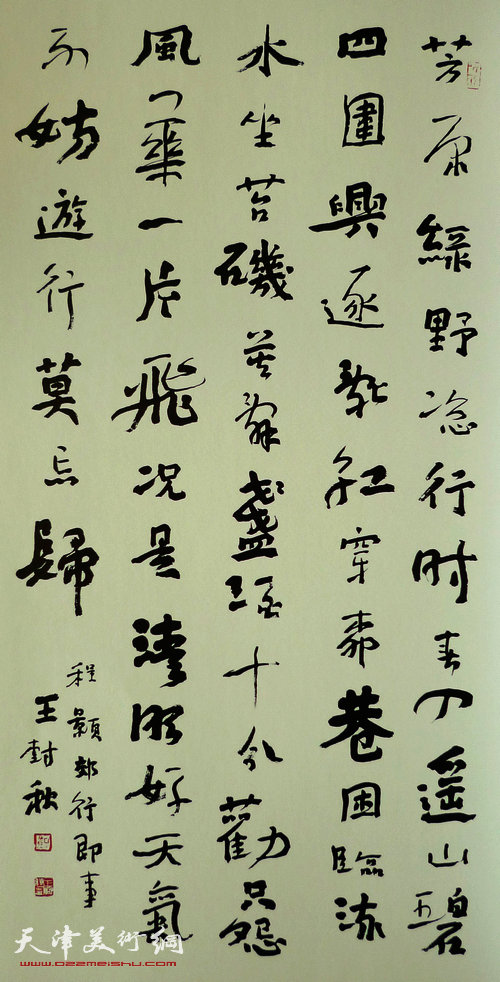 芳原綠野恣行时春入遥山碧
四圍興逐亂紅穿柳巷困臨流
水坐苔磯莫辞盞酒十分勸只恐
風華一片飛况是清明好天氣
不妨遊行莫忘歸
程顥郊行即事
王尌秋
天津美術網
www.022meishu.com